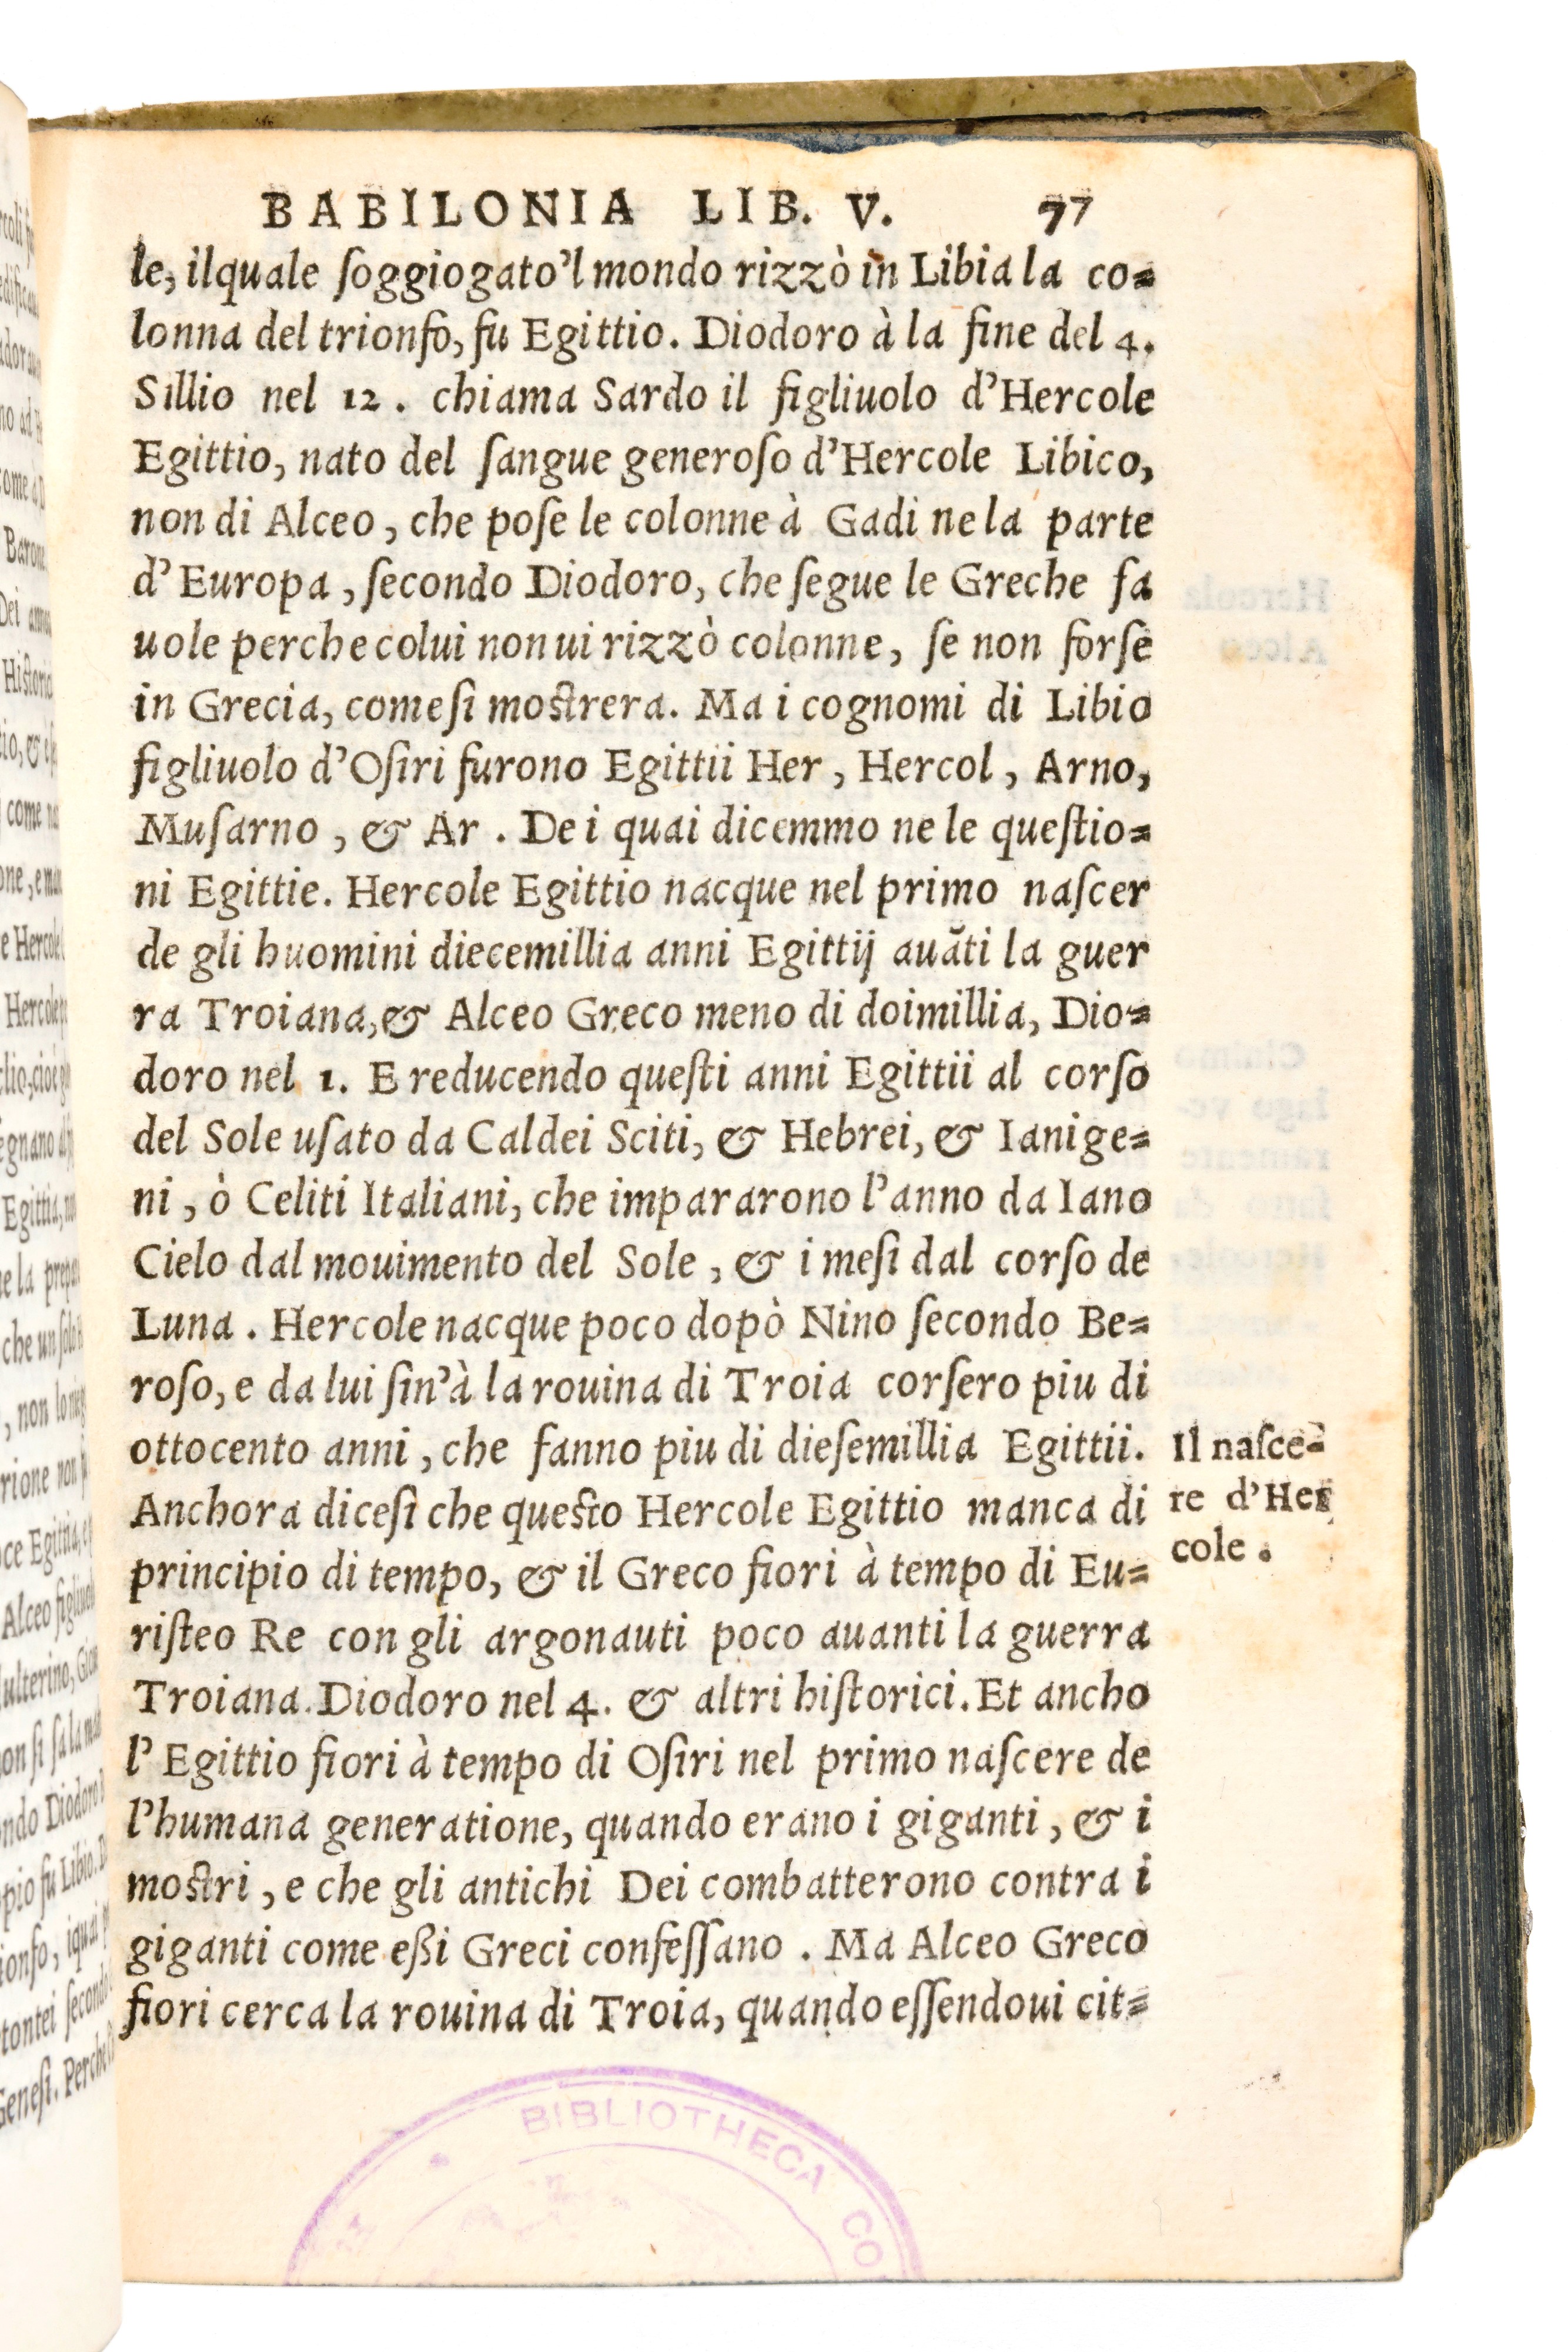 BABILONIA LIB. V. 77
le, ilquale ſoggiogato'l mondo rizzò in Libia la co=
lonna del trionfo, fu Egittio. Diodoro à la fine del 4.
Sillio nel 12. chiama Sardo il figliuolo d'Hercole
Egittio, nato del ſangue generoſo d'Hercole Libico,
non di Alceo, che poſe le colonne à Gadi ne la parte
d'Europa, ſecondo Diodoro, che ſegue le Greche fa
uole perche colui non ui rizzò colonne, ſe non forſe
in Grecia, come ſi moſtrera. Ma i cognomi di Libio
figliuolo d'Oſiri furono Egittii Her, Hercol, Arno,
Muſarno, & Ar. De i quai dicemmo ne le queſtio=
ni Egittie. Hercole Egittio nacque nel primo naſcer
de gli huomini diecemillia anni Egittij auãti la guer
ra Troiana, & Alceo Greco meno di doimillia, Dio=
doro nel 1. E reducendo queſti anni Egittii al corſo
del Sole uſato da Caldei Sciti, & Hebrei, & Ianige=
ni, ò Celiti Italiani, che impararono l'anno da Iano
Cielo dal mouimento del Sole, & i meſi dal corſo de
Luna. Hercole nacque poco dopò Nino ſecondo Be=
roſo, e da lui ſin'à la rouina di Troia corſero piu di
ottocento anni, che fanno piu di dieſemillia Egittii.
Anchora diceſi che queſto Hercole Egittio manca di
principio di tempo, & il Greco fiori à tempo di Eu=
riſteo Re con gli argonauti poco auanti la guerra
Troiana. Diodoro nel 4. & altri hiſtorici. Et ancho
l'Egittio fiori à tempo di Oſiri nel primo naſcere de
l'humana generatione, quando erano i giganti, & i
moſtri, e che gli antichi Dei combatterono contra i
giganti come eßi Greci confeſſano. Ma Alceo Greco
fiori cerca la rouina di Troia, quando eſſendoui cit=
Il naſce=
re d'Her
cole.
BIBLIOTHECA CO